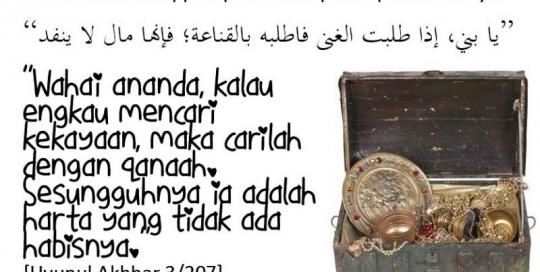 ”يا بني، إذا طلبت الغنى فاطلبه بالقناعة؛ فإنها مال لا ينفد“
"Wahai ananda, kalau
engkau mencari
kekayaan, maka carilah
dengan qanaah.
Sesungguhnya ia adalah
harta yang tidak ada
habisnya."
[Uyunul Akhbar 3/207]